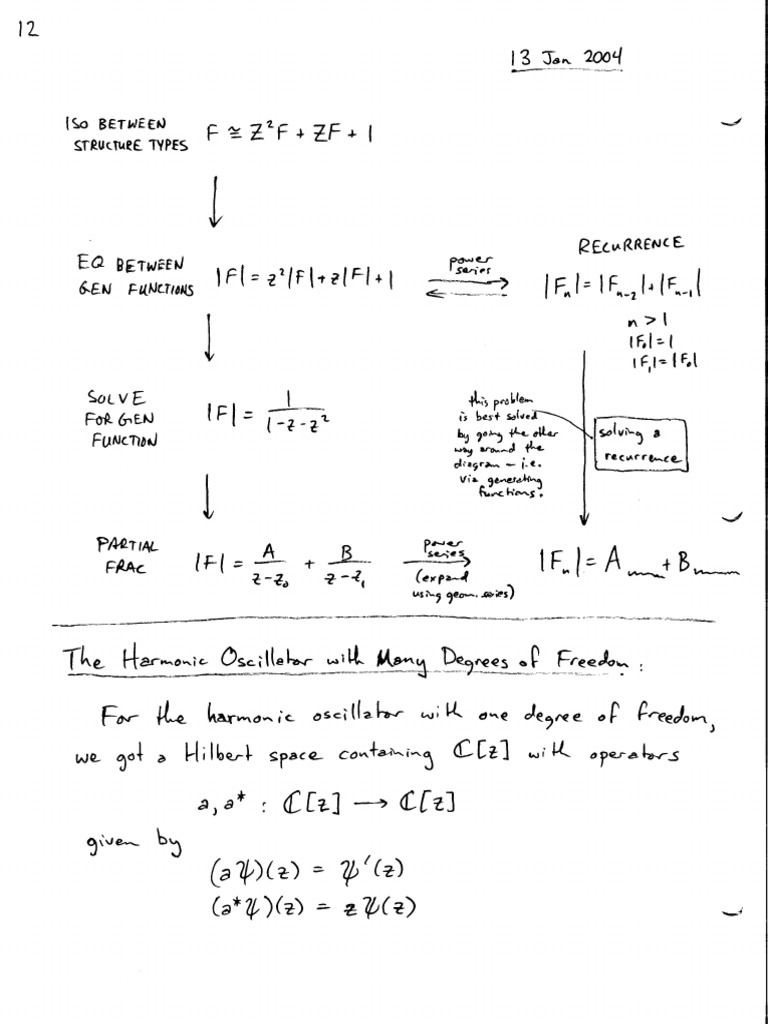 12
13 Jan 2004
ISO BETWEEN
STRUCTURE TYPES
F ≅ Z²F + ZF + 1
EQ BETWEEN
GEN FUNCTIONS
|F| = z²|F| + z|F| + 1
power
series
RECURRENCE
|Fₙ| = |Fₙ₋₂| + |Fₙ₋₁|
n > 1
|F₀| = 1
|F₁| = |F₀|
SOLVE
FOR GEN
FUNCTION
|F| = 1/(1-z-z²)
this problem
is best solved
by going the other
way around the
diagram – i.e.
via generating
functions.
solving a
recurrence
PARTIAL
FRAC
|F| = A/(z-z₀) + B/(z-z₁)
power
series
(expand
using geom. series)
|Fₙ| = A + B
The Harmonic Oscillator with Many Degrees of Freedom:
For the harmonic oscillator with one degree of freedom,
we got a Hilbert space containing ℂ[z] with operators
a, a* : ℂ[z] → ℂ[z]
given by
(aψ)(z) = ψ'(z)
(a*ψ)(z) = zψ(z)